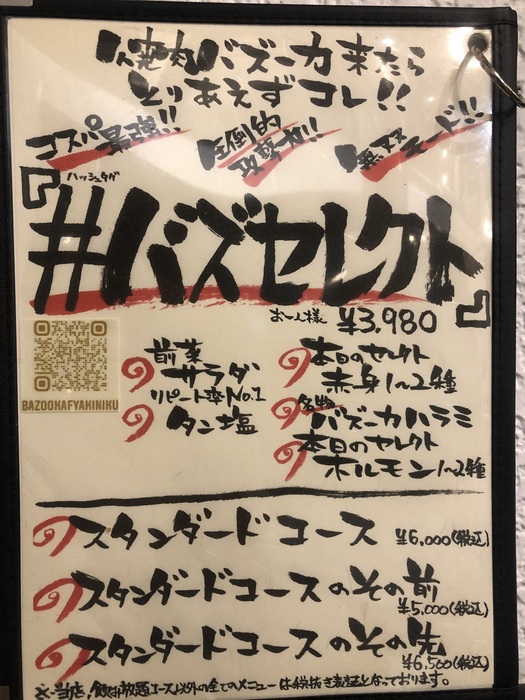 焼肉バズーカ来たら
とりあえずコレ!!
コスパ最強!! 圧倒的 攻撃力!! 無双モード!!
ハッシュタグ
『#バズセレクト』
お一人様 ¥3,980
前菜
サラダ
リピート率No.1
タン塩
本日のセレクト
赤身1〜2種
名物
バズーカハラミ
本日のセレクト
ホルモン1〜2種
BAZOOKAFYAKINIKU
スタンダードコース ¥6,000(税込)
スタンダードコースのその前
¥5,000(税込)
スタンダードコースのその先
¥6,500(税込)
※当店、飲み放題コース以外の全てのメニューは税抜き表記となっております。